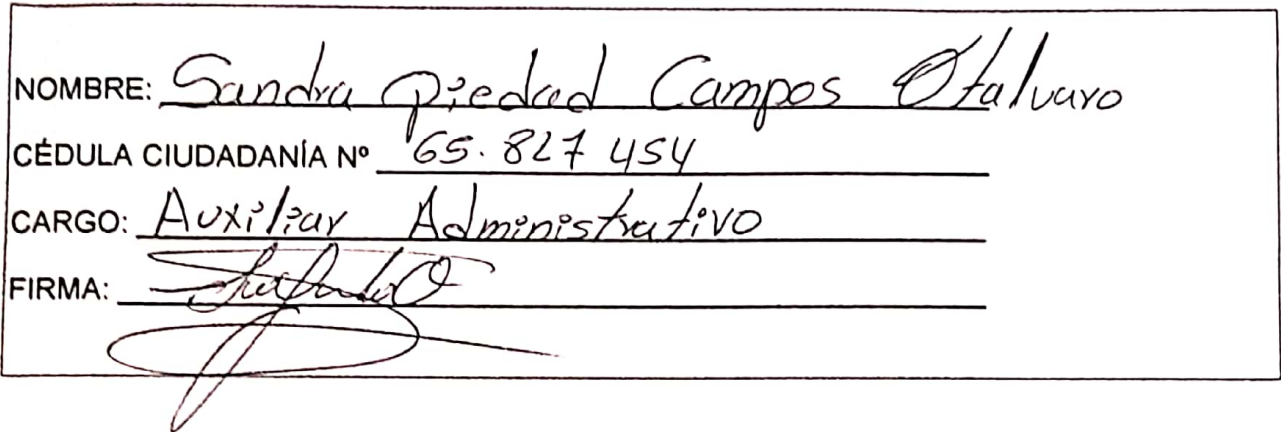 NOMBRE: Sandra Piedad Campos Otalvaro
CÉDULA CIUDADANÍA Nº 65.827 454
CARGO: Auxiliar Administrativo
FIRMA: